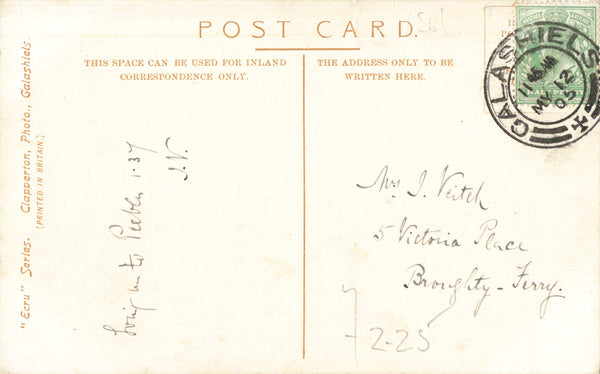 POST CARD.
THIS SPACE CAN BE USED FOR INLAND
CORRESPONDENCE ONLY.
THE ADDRESS ONLY TO BE
WRITTEN HERE.
"Ecru" Series. Clapperton, Photo., Galashiels
(PRINTED IN BRITAIN.)
Peebles 1.37
J.V.
Mrs J. Veitch
5 Victoria Place
Broughty-Ferry.
2-25
GALASHIELS
MY 12
05
HALF PENNY